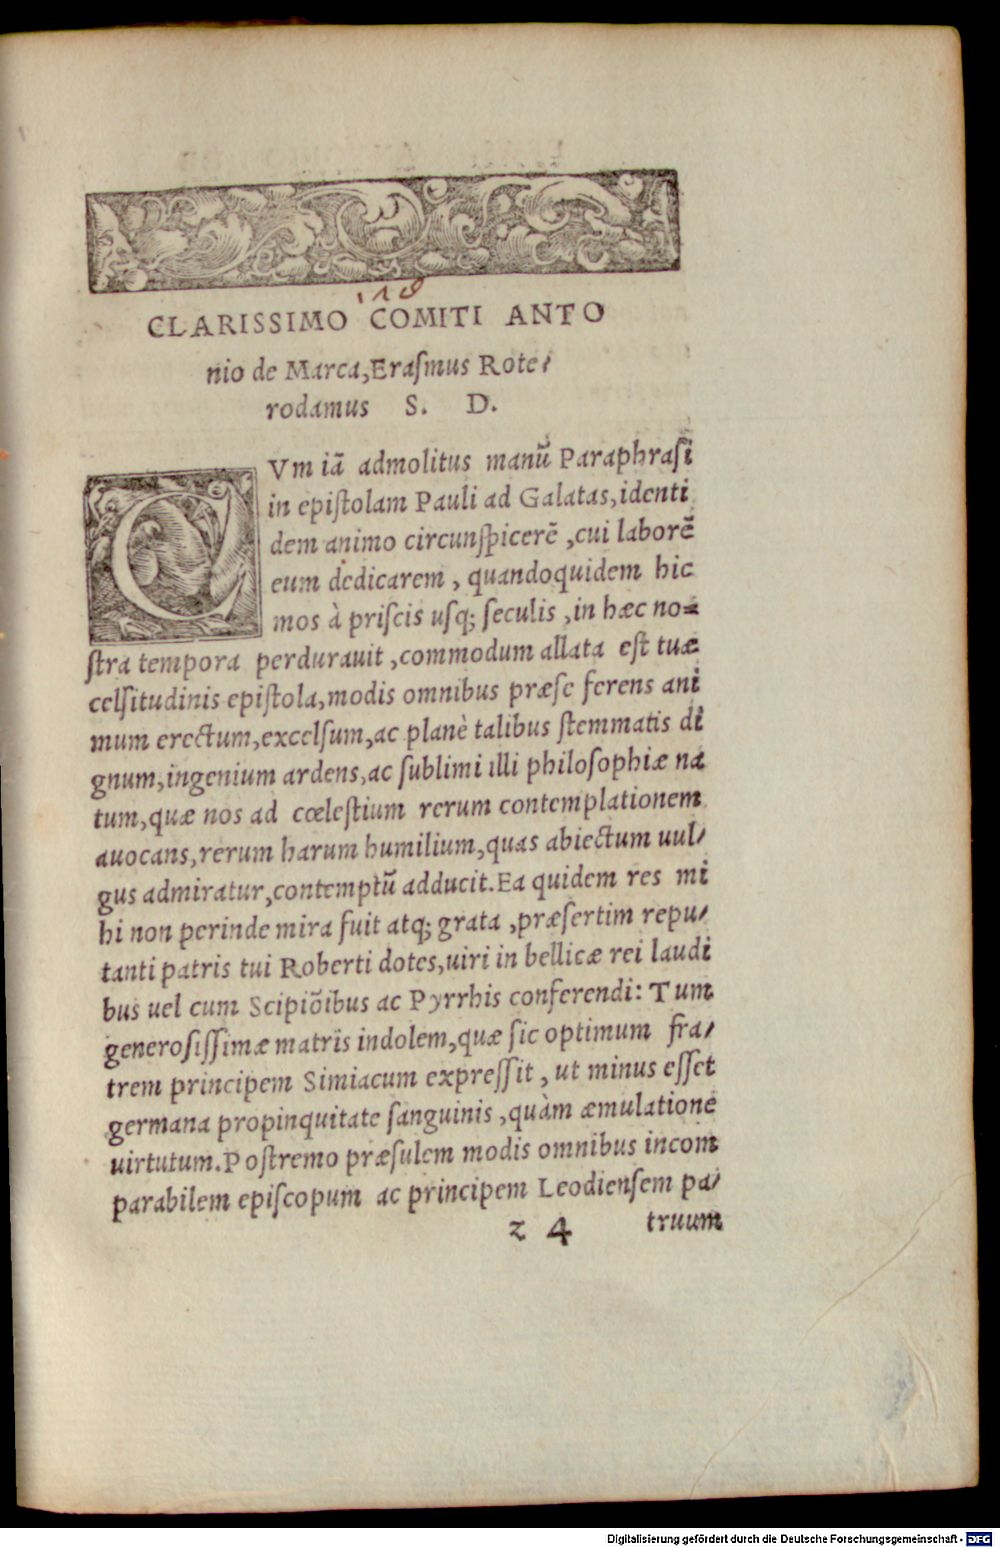 CLARISSIMO COMITI ANTO
nio de Marca,Eraſmus Rote⸗
rodamus S. D.
CVm iã admolitus manũ Paraphraſĩ
in epiſtolam Pauli ad Galatas,identi
dem animo circunſpicerẽ ,cui laborẽ
eum dedicarem , quandoquidem hic
mos à priſcis uſq; ſeculis ,in hæc no⸗
ſtra tempora perdurauit ,commodum allata eſt tuæ
celſitudinis epiſtola,modis omnibus præſe ferens ani
mum erectum,excelſum,ac planè talibus ſtemmatis di
gnum,ingenium ardens,ac ſublimi illi philoſophiæ na
tum,quæ nos ad cœleſtium rerum contemplationem
auocans,rerum harum humilium,quas abiectum uul⸗
gus admiratur,contemptũ adducit.Ea quidem res mi
hi non perinde mira fuit atq; grata ,præſertim repu⸗
tanti patris tui Roberti dotes,uiri in bellicæ rei laudi
bus uel cum Scipiõibus ac Pyrrhis conferendi: Tum
generoſiſſimæ matris indolem,quæ ſic optimum fra⸗
trem principem Simiacum expreſſit , ut minus eſſet
germana propinquitate ſanguinis ,quàm æmulatione
uirtutum.Poſtremo præſulem modis omnibus incom
parabilem epiſcopum ac principem Leodienſem pa⸗
z 4 truum
Digitalisierung gefördert durch die Deutsche Forschungsgemeinschaft - DFG